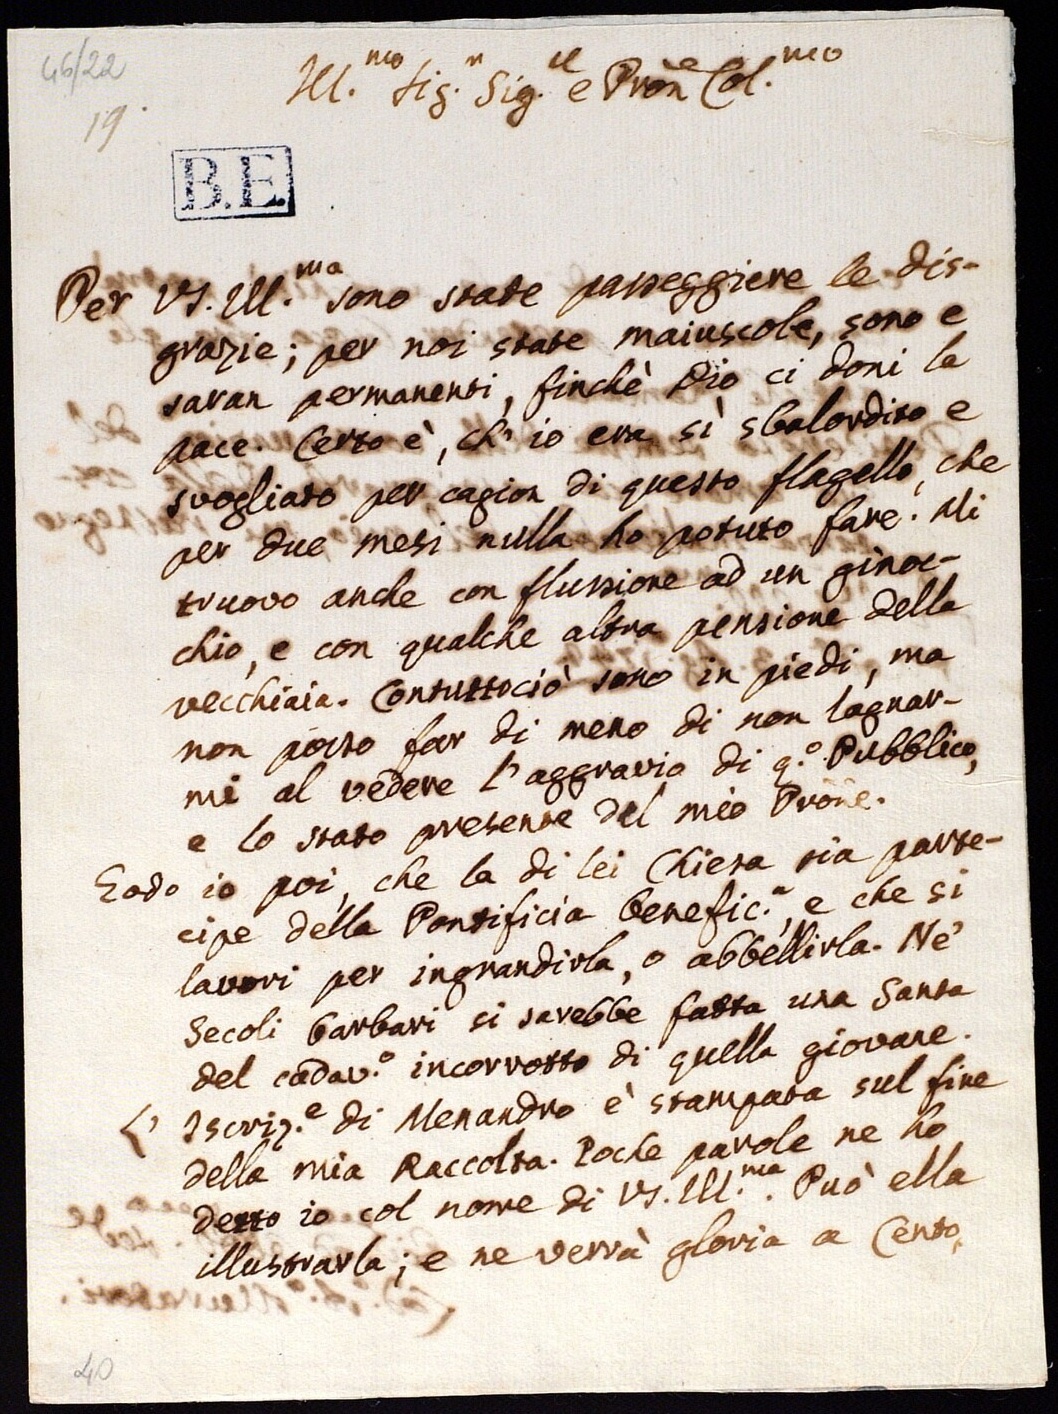 46/22
19.
Ill.mo Sig.r Sig.re e Pron͠e Col.mo
B.E.
Per VS. Ill.ma sono state passeggiere le dis-
grazie; per noi state maiuscole, sono e
saran permanenti, finchè Dio ci doni la
pace. Certo è, ch' io era sì sbalordito e
svogliato per cagion di questo flagello, che
per due mesi nulla ho potuto fare. Mi
truovo anche con flussione ad un ginoc-
chio, e con qualche altra pensione della
vecchiaia. Contuttociò sono in piedi, ma
non posso far di meno di non lagnar-
mi al vedere l'aggravio di q.o Pubblico,
e lo stato presente del mio Pro͠ne.
Godo io poi, che la di lei Chiesa sia parte-
cipe della Pontificia benefic.a, e che si
lavori per ingrandirla, o abbellirla. Ne'
Secoli barbari si sarebbe fatta una Santa
del cadav.o incorrotto di quella giovane.
L' Iscriz.e di Menandro è stampata sul fine
della mia Raccolta. Poche parole ne ho
detto io col nome di VS. Ill.ma. Può ella
illustrarla; e ne verrà gloria a Cento,
40